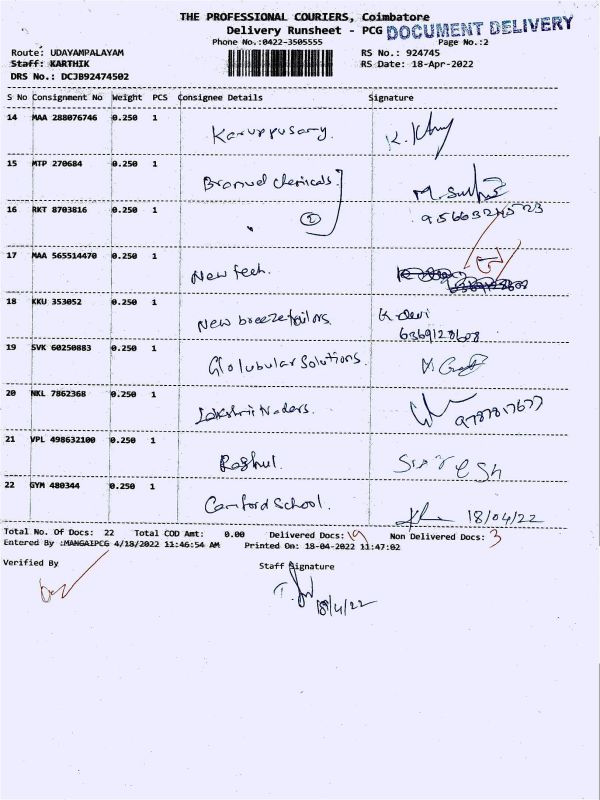 THE PROFESSIONAL COURIERS, Coimbatore
Delivery Runsheet - PCG
DOCUMENT DELIVERY
Phone No.:0422-3505555 Page No.:2
Route: UDAYAMPALAYAM RS No.: 924745
Staff: KARTHIK RS Date: 18-Apr-2022
DRS No.: DCJB92474502
S No Consignment No Weight PCS Consignee Details Signature
14 MAA 288076746 0.250 1 Karuppusamy.
15 MTP 270684 0.250 1 Chemicals.
16 RKT 8703816 0.250 1 2
17 MAA 565514470 0.250 1 New Tech.
18 KKU 353052 0.250 1 New breeze tailors. K. devi
6369128608
19 SVK 60250883 0.250 1 Globular Solutions.
20 NKL 7862368 0.250 1 9787817677
21 VPL 498632100 0.250 1 Raghul.
22 GYM 480344 0.250 1 Camford School. 18/04/22
Total No. Of Docs: 22 Total COD Amt: 0.00 Delivered Docs: 19 Non Delivered Docs: 3
Entered By :MANGAIPCG 4/18/2022 11:46:54 AM Printed On: 18-04-2022 11:47:02
Verified By Staff Signature
18/4/22